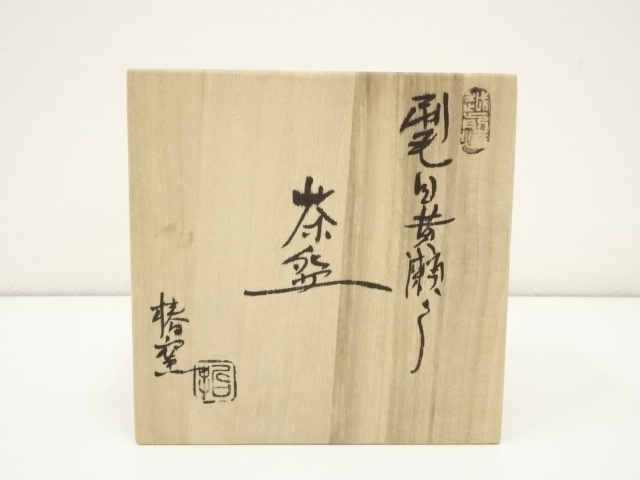 刷毛目黄瀬戸
茶盌
椿窯